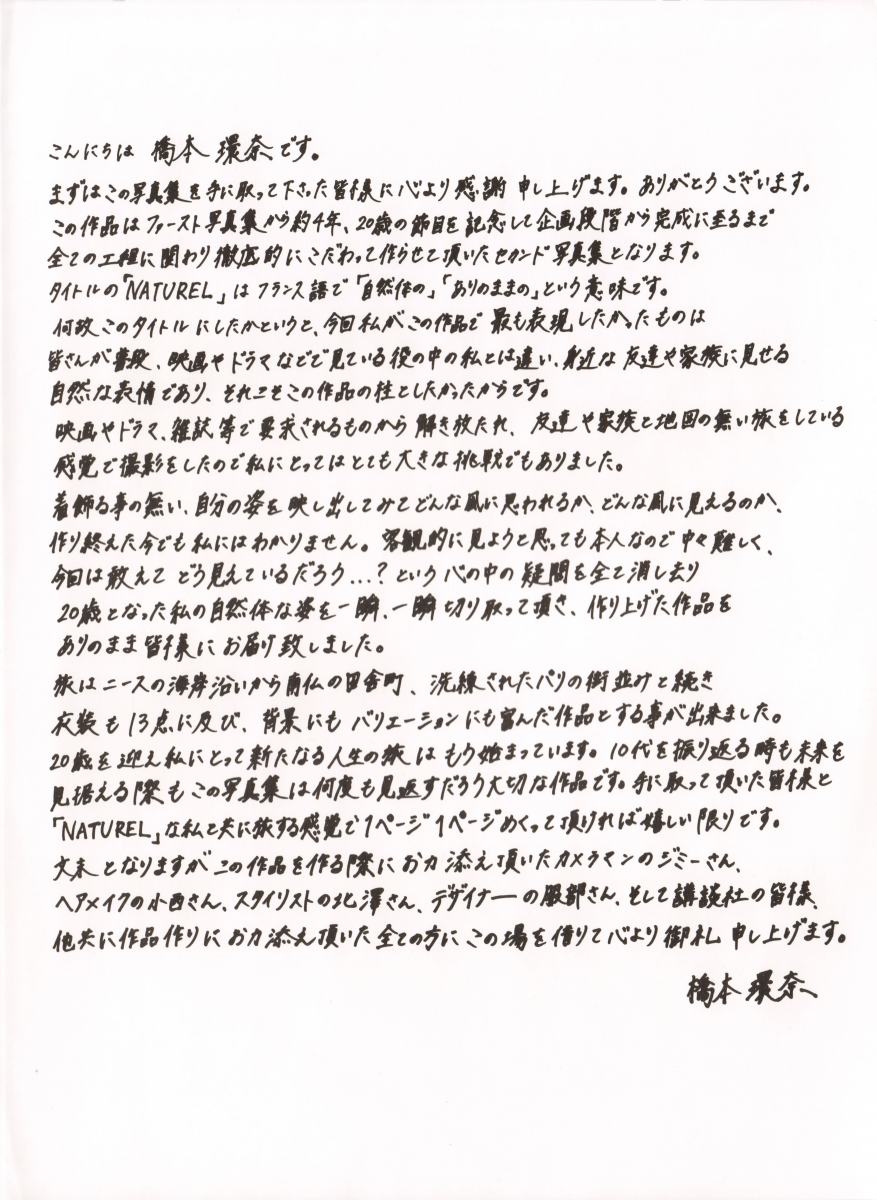 こんにちは 橋本環奈です。
まずはこの写真集を手に取って下さった皆様に心より感謝申し上げます。ありがとうございます。
この作品はファースト写真集から約4年、20歳の節目を記念して企画段階から完成に至るまで
全ての工程に関わり徹底的にこだわって作らせて頂いたセカンド写真集となります。
タイトルの「NATUREL」はフランス語で「自然体の」「ありのままの」という意味です。
何故このタイトルにしたかというと、今回私がこの作品で最も表現したかったものは
皆さんが普段、映画やドラマなどで見ている役の中の私とは違い、身近な友達や家族に見せる
自然な表情であり、それこそこの作品の柱としたかったからです。
映画やドラマ、雑誌等で要求されるものから解き放たれ、友達や家族と地図の無い旅をしている
感覚で撮影をしたので私にとってはとても大きな挑戦でもありました。
着飾る事の無い、自分の姿を映し出してみてどんな風に思われるか、どんな風に見えるのか、
作り終えた今でも私にはわかりません。客観的に見ようと思っても本人なので中々難しく、
今回は敢えてどう見えているだろう...?という心の中の疑問を全て消し去り
20歳となった私の自然体な姿を一瞬、一瞬切り取って頂き、作り上げた作品を
ありのまま皆様にお届け致しました。
旅はニースの海岸沿いから南仏の田舎町、洗練されたパリの街並みと続き
衣装も13点に及び、背景にもバリエーションにも富んだ作品とする事が出来ました。
20歳を迎え私にとって新たなる人生の旅はもう始まっています。10代を振り返る時も未来を
見据える際もこの写真集は何度も見返すだろう大切な作品です。手に取って頂いた皆様と
「NATUREL」な私と共に旅する感覚で1ページ1ページめくって頂ければ嬉しい限りです。
文末となりますがこの作品を作る際にお力添え頂いたカメラマンのジミーさん、
ヘアメイクの小西さん、スタイリストの北澤さん、デザイナーの服部さん、そして講談社の皆様、
他共に作品作りにお力添え頂いた全ての方にこの場を借りて心より御礼申し上げます。
橋本環奈